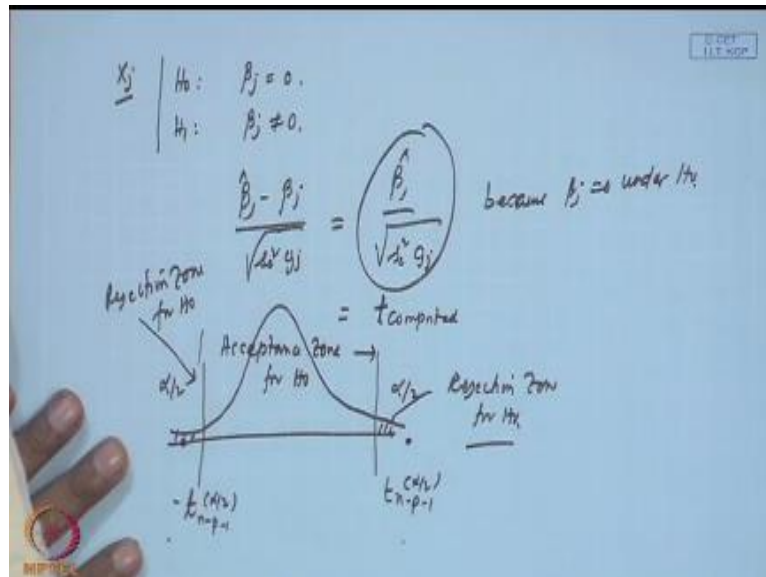 Xj | H0: βj = 0.
H1: βj ≠ 0.
β̂j - βj / √(se² gj) = β̂j / √(se² gj) because βj = 0 under H0.
= t computed
Rejection Zone for H0
Acceptance Zone → for H0
α/2
α/2
Rejection Zone for H0
-t n-p-1 (α/2)
t n-p-1 (α/2)
I.I.T. KGP
NPTEL